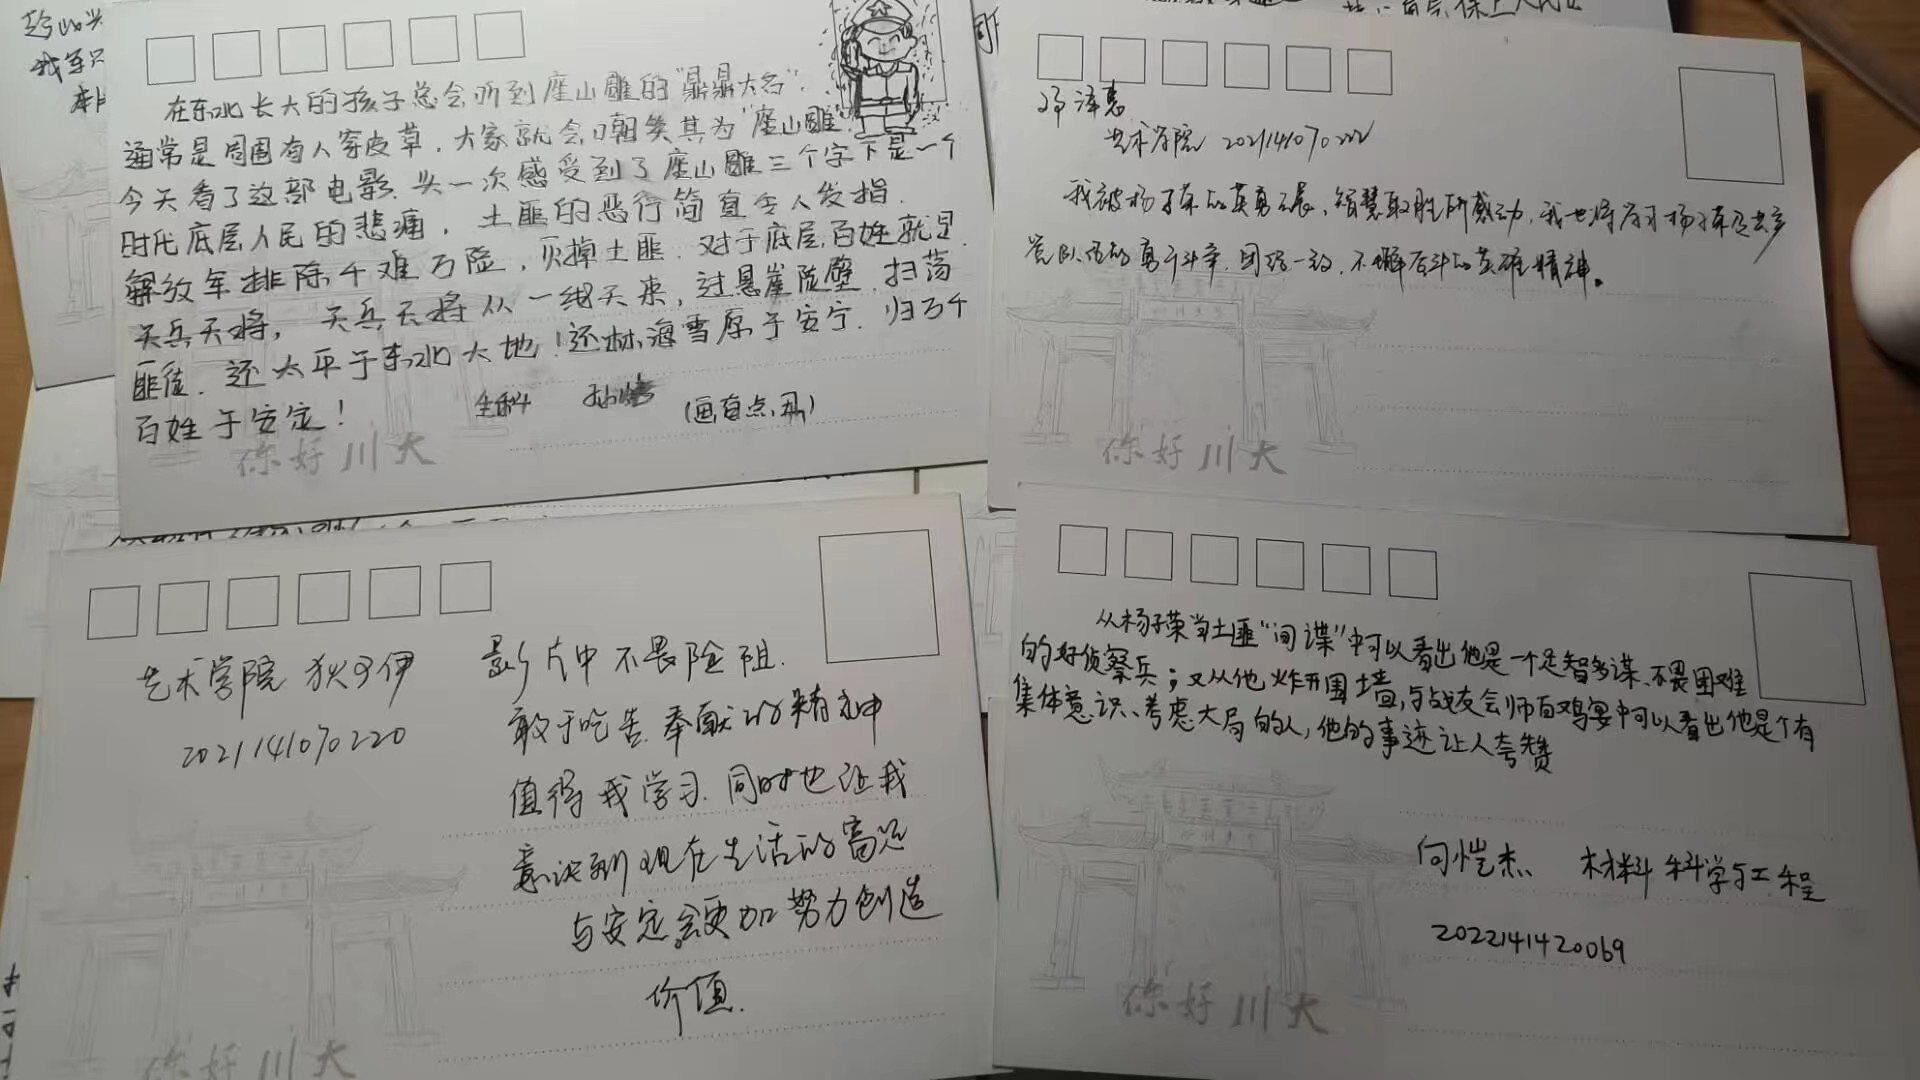 在东北长大的孩子总会听到座山雕的"鼎鼎大名".
通常是周围有人穿皮草，大家就会嘲笑其为"座山雕"
今天看了这部电影，头一次感受到了座山雕三个字下是一个
时代底层人民的悲痛，土匪的恶行简直令人发指.
解放军排除千难万险，灭掉土匪.对于底层百姓就是
天兵天将，天兵天将从一线天来，过悬崖陡壁.扫荡
匪徒.还太平于东北大地！还林海雪原于安宁.归万千
百姓于安定！
生科 孙 (画有点丑)
你好川大
泽惠
艺术学院 2021141070222
我被杨子荣的英勇、智慧取胜所感动，我也将学习杨子荣及共产
党队伍的勇于斗争，团结一致，不懈奋斗的英雄精神。
你好川大
艺术学院 狄子伊
2021141070220
影片中不畏险阻.
敢于吃苦.奉献的精神
值得我学习.同时也让我
意识到现在生活的富足
与安定.会更加努力创造
价值.
你好川大
从杨子荣当土匪"间谍"中可以看出他是一个足智多谋、不畏困难
的好侦察兵；又从他炸开围墙，与战友会师百鸡宴中可以看出他是个有
集体意识、考虑大局的人，他的事迹让人夸赞
向恺杰 材料科学与工程
2022141420069
你好川大